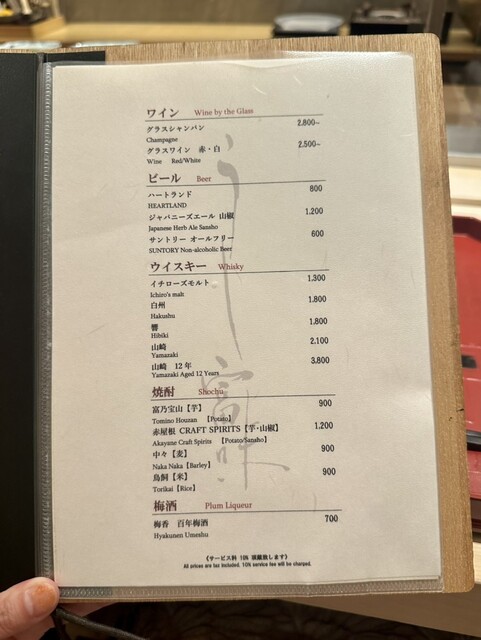 ワイン Wine by the Glass
グラスシャンパン 2.800~
Champagne
グラスワイン 赤・白 2.500~
Wine Red/White
ビール Beer
ハートランド 800
HEARTLAND
ジャパニーズエール 山椒 1.200
Japanese Herb Ale Sansho
サントリー オールフリー 600
SUNTORY Non-alcoholic Beer
ウイスキー Whisky
イチローズモルト 1.300
Ichiro's malt
白州 1.800
Hakushu
響 1.800
Hibiki
山崎 2.100
Yamazaki
山崎 12年 3.800
Yamazaki Aged 12 Years
焼酎 Shochu
富乃宝山【芋】 900
Tomino Houzan 【Potato】
赤屋根 CRAFT SPIRITS【芋・山椒】 1.200
Akayane Craft Spirits 【Potato/Sansho】
中々【麦】 900
Naka Naka【Barley】
鳥飼【米】 900
Torikai【Rice】
梅酒 Plum Liqueur
梅香 百年梅酒 700
Hyakunen Umeshu
《サービス料 10% 頂戴致します》
All prices are tax included. 10% service fee will be charged.